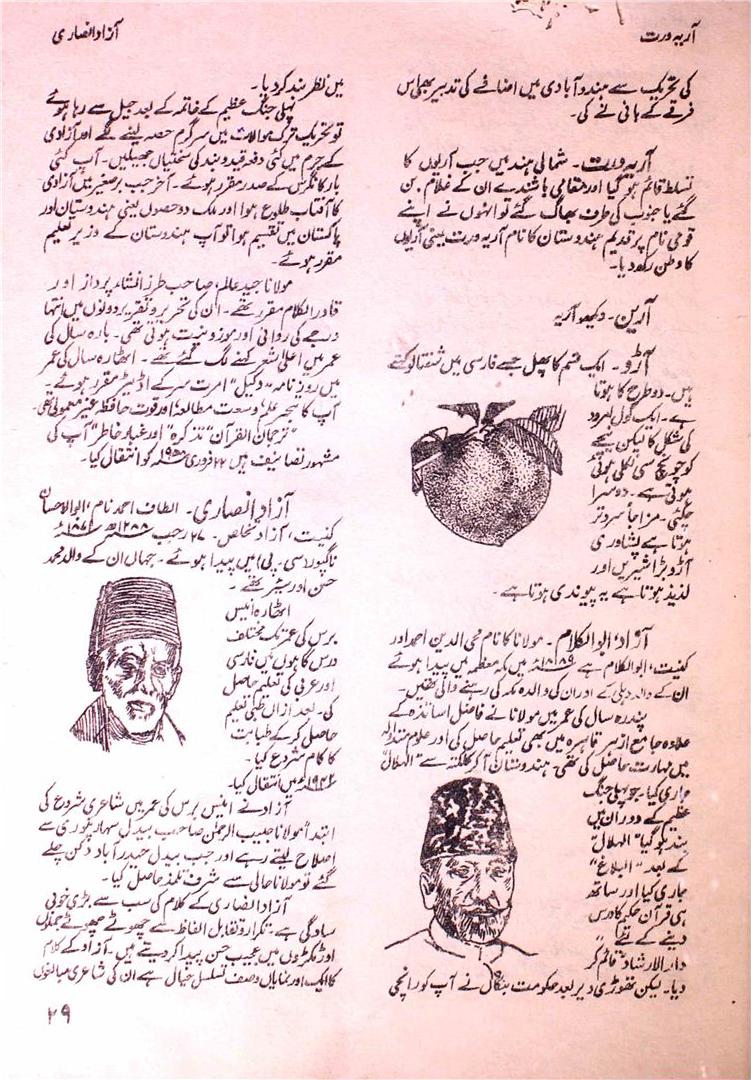 آریہ ورت
آزاد انصاری
کی تحریک سے ہندو آبادی میں اضافے کی تدبیر بھی اس
فرقے کے بانی نے کی۔
آریہ ورت۔ شمالی ہند میں جب آریوں کا
تسلط قائم ہو گیا اور مقامی باشندے ان کے غلام بن
گئے یا جنوب کی طرف بھاگ گئے تو انہوں نے اپنے
قومی نام پر قدیم ہندوستان کا نام آریہ ورت یعنی آریوں
کا وطن رکھ دیا۔
آرین۔ دیکھو آریہ
آڑو۔ ایک قسم کا پھل جسے فارسی میں شفتالو کہتے
ہیں۔ دو طرح کا ہوتا
ہے۔ ایک گول امرود
کی شکل کا لیکن نیچے
کو چونچ سی نکلی ہوئی
ہوتی ہے۔ دوسرا
چکئی۔ مزاجاً سرد تر
ہوتا ہے پشاوری
آڑو بڑا شیریں اور
لذیذ ہوتا ہے یہ پیوندی ہوتا ہے۔
آزاد، ابوالکلام۔ مولانا کا نام محی الدین احمد اور
کنیت، ابوالکلام ہے ۱۸۸۹ء میں مکہ معظمہ میں پیدا ہوئے
ان کے والد دہلی کے اور ان کی والدہ مکہ کی رہنے والی تھیں۔
پندرہ سال کی عمر میں مولانا نے فاضل اساتذہ کے
علاوہ جامع ازہر قاہرہ میں بھی تعلیم حاصل کی اور علوم متداولہ
میں مہارت حاصل کی تھی۔ ہندوستان آ کر کلکتہ سے "الہلال"
جاری کیا۔ جو پہلی جنگ
عظیم کے دوران میں
بند ہو گیا "الہلال"
کے بعد "البلاغ"
جاری کیا اور ساتھ
ہی قرآن حکیم کا درس
دینے کے لئے
دارالارشاد" قائم کر
دیا۔ لیکن تھوڑی دیر بعد حکومت بنگال نے آپ کو رانچی
میں نظر بند کر دیا۔
پہلی جنگ عظیم کے خاتمہ کے بعد جیل سے رہا ہوئے
تو تحریک ترک موالات میں سرگرم حصہ لینے لگے اور آزادی
کے جرم میں کئی دفعہ قید و بند کی سختیاں جھیلیں۔ آپ کئی
بار کانگرس کے صدر مقرر ہوئے۔ آخر جب برصغیر میں آزادی
کا آفتاب طلوع ہوا اور ملک دو حصوں یعنی ہندوستان اور
پاکستان میں تقسیم ہوا تو آپ ہندوستان کے وزیر تعلیم
مقرر ہوئے۔
مولانا جید عالم، صاحب طرز انشاء پرداز اور
قادر الکلام مقرر تھے۔ ان کی تحریر و تقریر دونوں میں انتہا
درجے کی روانی اور موزونیت ہوتی تھی۔ بارہ سال کی
عمر میں اعلیٰ شعر کہنے لگ گئے تھے۔ اٹھارہ سال کی عمر
میں روزنامہ "وکیل" امرت سر کے اڈیٹر مقرر ہوئے۔
آپ کا تبحر علم، وسعت مطالعہ اور قوت حافظہ غیر معمولی تھی۔
"ترجمان القرآن" "تذکرہ" اور "غبار خاطر" آپ کی
مشہور تصانیف ہیں ۲۲ فروری ۱۹۵۸ء کو انتقال کیا۔
آزاد انصاری۔ الطاف احمد نام، ابوالاحسان
کنیت، آزاد تخلص۔ ۲۷ رجب ۱۲۸۸ھ ۱۸۷۱ء
ناگپور (سی۔ پی) میں پیدا ہوئے۔ جہاں ان کے والد محمد
حسن اورسیئر تھے۔
اٹھارہ انیس
برس کی عمر تک مختلف
درس گاہوں میں فارسی
اور عربی کی تعلیم حاصل
کی۔ بعد ازاں طبی تعلیم
حاصل کر کے طبابت
کا کام شروع کیا۔
میں انتقال کیا۔
آزاد نے انیس برس کی عمر میں شاعری شروع کی
ابتداً مولانا حبیب الرحمٰن صاحب بیدل سہارنپوری سے
اصلاح لیتے رہے اور جب بیدل حیدر آباد دکن چلے
گئے تو مولانا حالی سے شرف تلمذ حاصل کیا۔
آزاد انصاری کے کلام کی سب سے بڑی خوبی
سادگی ہے۔ تکرار و تقابل الفاظ سے چھوٹے چھوٹے جملوں
اور ٹکڑوں میں عجیب حسن پیدا کر دیتے ہیں۔ آزاد کے کلام
کا ایک اور نمایاں وصف تسلسل خیال ہے ان کی شاعری مبالغوں
۲۹